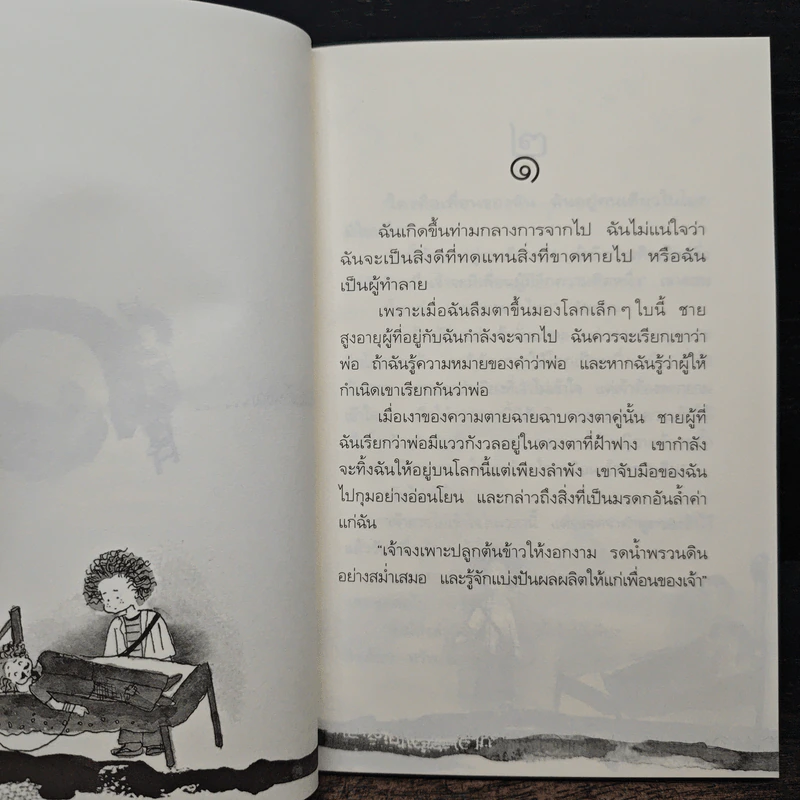 ๑
ฉันเกิดขึ้นท่ามกลางการจากไป ฉันไม่แน่ใจว่า
ฉันจะเป็นสิ่งดีที่ทดแทนสิ่งที่ขาดหายไป หรือฉัน
เป็นผู้ทำลาย
เพราะเมื่อฉันลืมตาขึ้นมองโลกเล็ก ๆ ใบนี้ ชาย
สูงอายุผู้ที่อยู่กับฉันกำลังจะจากไป ฉันควรจะเรียกเขาว่า
พ่อ ถ้าฉันรู้ความหมายของคำว่าพ่อ และหากฉันรู้ว่าผู้ให้
กำเนิดเขาเรียกกันว่าพ่อ
เมื่อเงาของความตายฉายฉาบดวงตาคู่นั้น ชายผู้ที่
ฉันเรียกว่าพ่อมีแววกังวลอยู่ในดวงตาที่ฝ้าฟาง เขากำลัง
จะทิ้งฉันให้อยู่บนโลกนี้แต่เพียงลำพัง เขาจับมือของฉัน
ไปกุมอย่างอ่อนโยน และกล่าวถึงสิ่งที่เป็นมรดกอันล้ำค่า
แก่ฉัน
“เจ้าจงเพาะปลูกต้นข้าวให้งอกงาม รดน้ำพรวนดิน
อย่างสม่ำเสมอ และรู้จักแบ่งปันผลผลิตให้แก่เพื่อนของเจ้า”